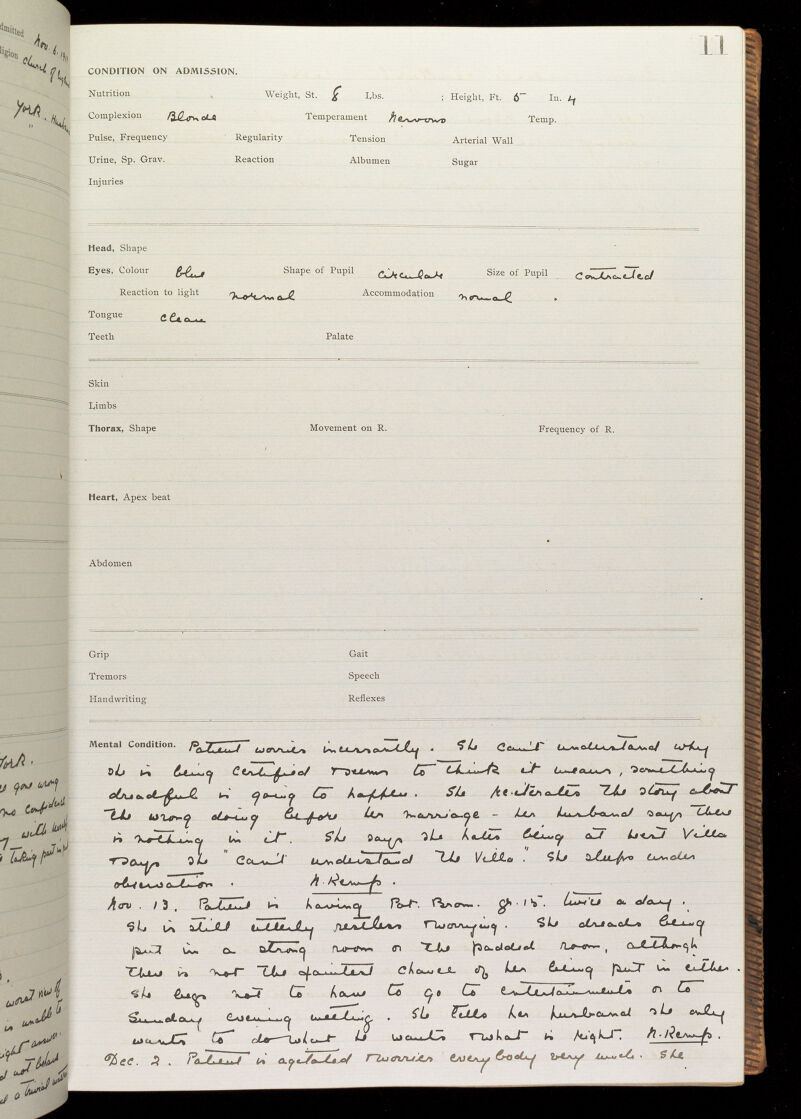 11
CONDITION ON ADMISSION.
Nutrition Weight, St. 8 Lbs. ; Height, Ft. 5 In. 4
Complexion Blonde Temperament Nervous Temp.
Pulse, Frequency Regularity Tension Arterial Wall
Urine, Sp. Grav. Reaction Albumen Sugar
Injuries
Head, Shape
Eyes, Colour blue Shape of Pupil circular Size of Pupil contracted
Reaction to light normal Accommodation normal.
Tongue clean
Teeth Palate
Skin
Limbs
Thorax, Shape Movement on R. Frequency of R.
Heart, Apex beat
Abdomen
Grip Gait
Tremors Speech
Handwriting Reflexes
Mental Condition. Patient worries incessantly. She can't understand why
she is being certified & seems to think it means, something
dreadful is going to happen. She reiterates the story about
the wrong doing before her marriage - her husband says there
is nothing in it. She says she hates being at West Villa
& says she "can't understand the Villa." She sleeps under
observation. N. Kemp.
Nov. 13. Patient is having Pot. Brom. gr. 15. twice a day.
She is still utterly restless & worrying. She dreads being
put in a strong room or the padded room, although
there is not the faintest chance of her being put in either.
She begs not to have to go to entertainments or to
Sunday evening meeting. She tells her husband she only
wants to do what he wants & what is right. N. Kemp.
Dec. 2. Patient is agitated & worries everybody very much. She
admitted Nov. 6.
Religion Church of
York.
York.
gone wrong
no confident
with
taking part in
worst
is unable to
answer.
not
a trivial